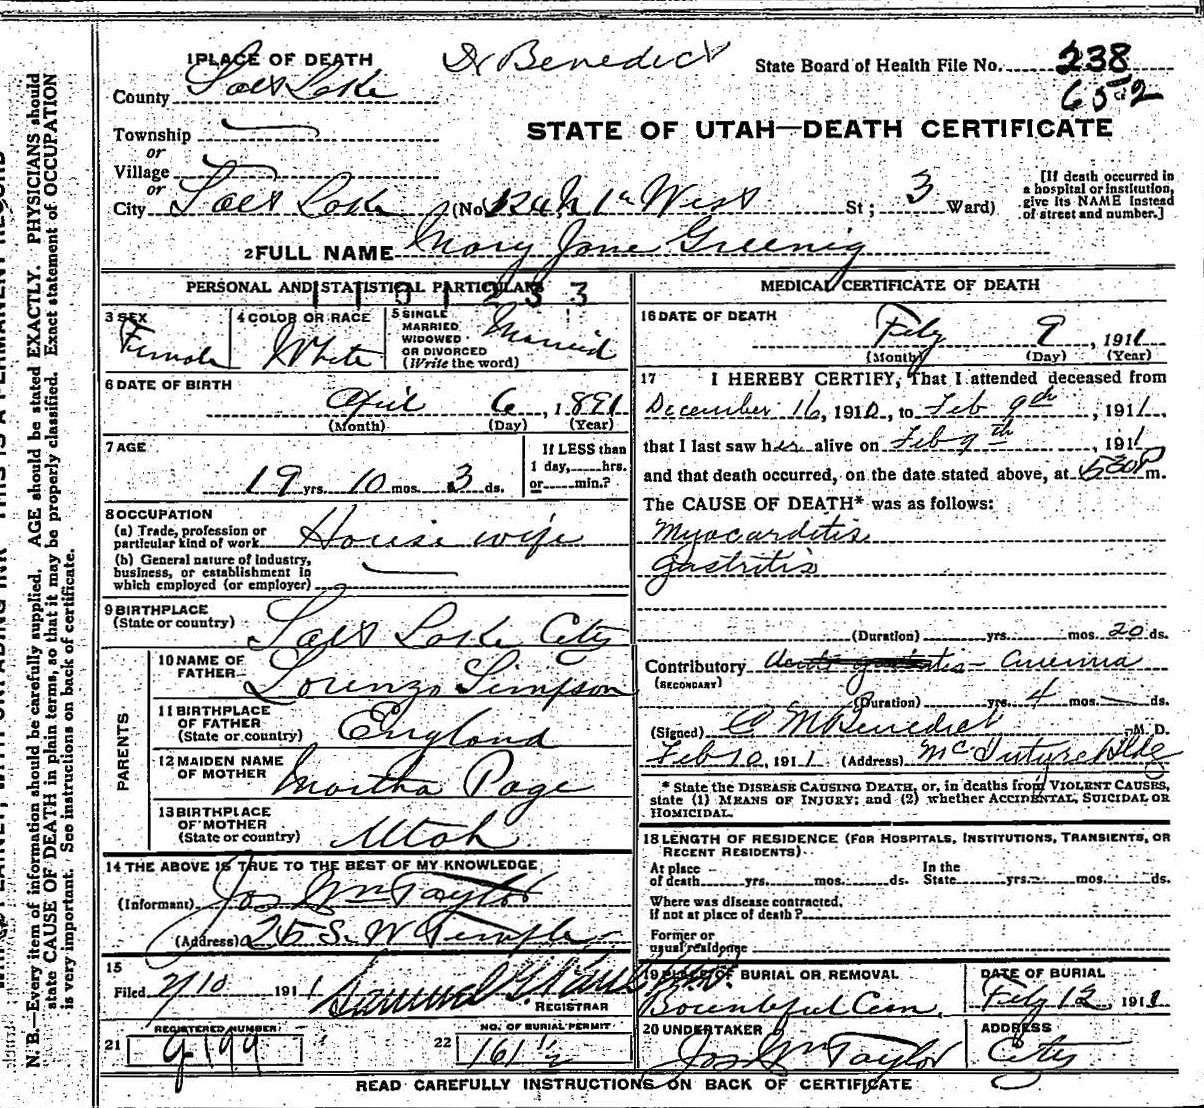 1 PLACE OF DEATH
Dr Benedict
State Board of Health File No. 238
County Salt Lake
652
STATE OF UTAH—DEATH CERTIFICATE
Township
or
Village
or
City Salt Lake (No. West St; 3 Ward)
[If death occurred in a hospital or institution, give its NAME instead of street and number.]
2 FULL NAME Mary Jane Greenig
PERSONAL AND STATISTICAL PARTICULARS
1101233
3 SEX Female
4 COLOR OR RACE White
5 SINGLE MARRIED WIDOWED OR DIVORCED (Write the word) Married
6 DATE OF BIRTH
April 6, 1891
(Month) (Day) (Year)
7 AGE
19 yrs. 10 mos. 3 ds.
If LESS than 1 day, hrs. or min.?
8 OCCUPATION
(a) Trade, profession or particular kind of work House wife
(b) General nature of industry, business, or establishment in which employed (or employer)
9 BIRTHPLACE
(State or country) Salt Lake City
PARENTS
10 NAME OF FATHER Lorenzo Simpson
11 BIRTHPLACE OF FATHER (State or country) England
12 MAIDEN NAME OF MOTHER Martha Page
13 BIRTHPLACE OF MOTHER (State or country) Utah
14 THE ABOVE IS TRUE TO THE BEST OF MY KNOWLEDGE
(Informant) Jos Wm Taylor
(Address) 25 S. W Temple
15
Filed 2/10 1911 Samuel G. REGISTRAR
21 REGISTERED NUMBER
22 NO. OF BURIAL PERMIT 161 1/2
MEDICAL CERTIFICATE OF DEATH
16 DATE OF DEATH
Feby 9, 1911
(Month) (Day) (Year)
17 I HEREBY CERTIFY, That I attended deceased from
December 16, 1910, to Feb 9th, 1911,
that I last saw her alive on Feb 9th, 1911
and that death occurred, on the date stated above, at m.
The CAUSE OF DEATH* was as follows:
Myocarditis
Gastritis
(Duration) yrs. mos. 20 ds.
Contributory (SECONDARY) Anemia
(Duration) yrs. 4 mos. ds.
(Signed) C M Benedict M. D.
Feb 10, 1911 (Address) McIntyre Bldg
* State the DISEASE CAUSING DEATH, or, in deaths from VIOLENT CAUSES, state (1) MEANS OF INJURY; and (2) whether ACCIDENTAL, SUICIDAL OR HOMICIDAL.
18 LENGTH OF RESIDENCE (FOR HOSPITALS, INSTITUTIONS, TRANSIENTS, OR RECENT RESIDENTS)
At place of death yrs. mos. ds. In the State yrs. mos. ds.
Where was disease contracted, if not at place of death?
Former or usual residence
19 PLACE OF BURIAL OR REMOVAL
Bountiful Cem.
DATE OF BURIAL
Feby 12, 1911
20 UNDERTAKER
Jos Wm Taylor
ADDRESS
City
READ CAREFULLY INSTRUCTIONS ON BACK OF CERTIFICATE
N. B.—Every item of information should be carefully supplied. AGE should be stated EXACTLY. PHYSICIANS should
state CAUSE OF DEATH in plain terms, so that it may be properly classified. Exact statement of OCCUPATION
is very important. See instructions on back of certificate.